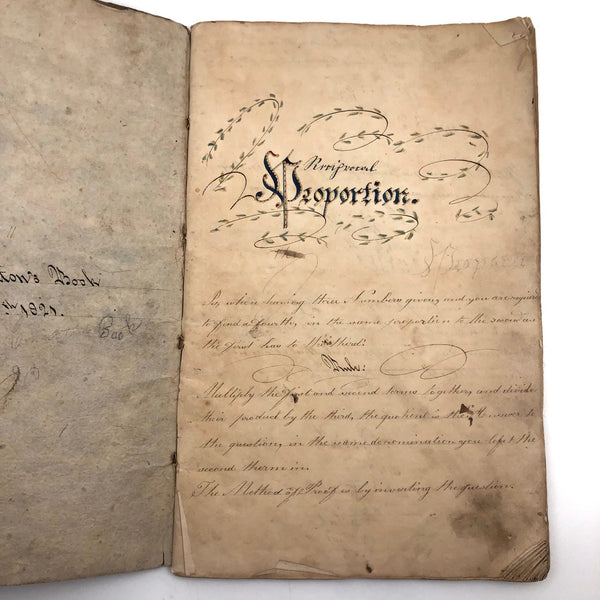 ton's Book
th 1821.
Book
Reciprocal
Proportion.
Is, when having three Numbers given, and you are required
to find a fourth, in the same proportion to the second as
the first has to the third.
Rule.
Multiply the first and second terms together, and divide
their product by the third, the quotient is the Answer to
the question, in the same denomination you left the
second therm in.
The Method of Proof is by inverting the question.